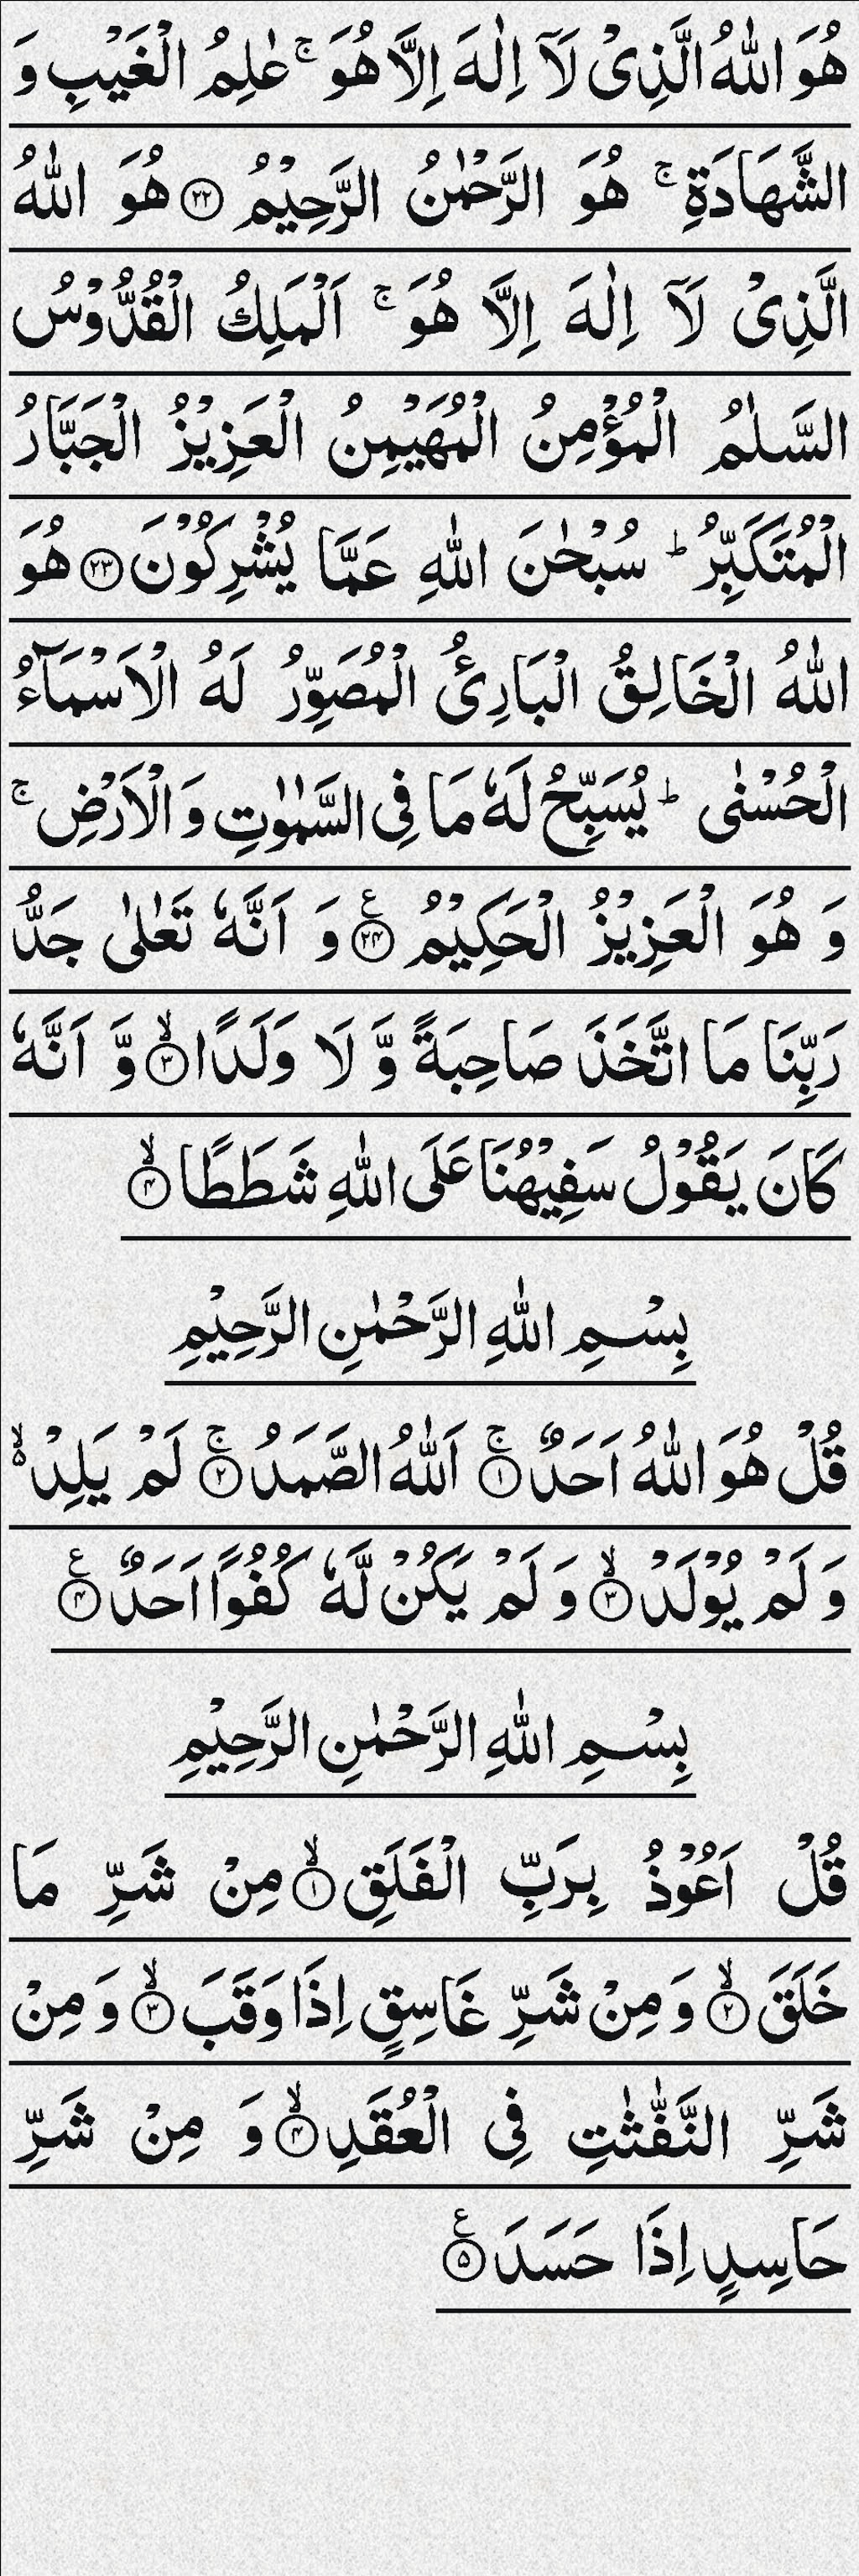 هُوَ اللّٰهُ الَّذِیْ لَاۤ اِلٰهَ اِلَّا هُوَ ۚ عٰلِمُ الْغَیْبِ وَ
الشَّهَادَةِ ۚ هُوَ الرَّحْمٰنُ الرَّحِیْمُ ﴿۲۲﴾ هُوَ اللّٰهُ
الَّذِیْ لَاۤ اِلٰهَ اِلَّا هُوَ ۚ اَلْمَلِكُ الْقُدُّوْسُ
السَّلٰمُ الْمُؤْمِنُ الْمُهَیْمِنُ الْعَزِیْزُ الْجَبَّارُ
الْمُتَكَبِّرُ ؕ سُبْحٰنَ اللّٰهِ عَمَّا یُشْرِكُوْنَ ﴿۲۳﴾ هُوَ
اللّٰهُ الْخَالِقُ الْبَارِئُ الْمُصَوِّرُ لَهُ الْاَسْمَآءُ
الْحُسْنٰی ؕ یُسَبِّحُ لَهٗ مَا فِی السَّمٰوٰتِ وَ الْاَرْضِ ۚ
وَ هُوَ الْعَزِیْزُ الْحَكِیْمُ ﴿۲۴﴾ ع وَ اَنَّهٗ تَعٰلٰی جَدُّ
رَبِّنَا مَا اتَّخَذَ صَاحِبَةً وَّ لَا وَلَدًا ۙ﴿۳﴾ وَّ اَنَّهٗ
كَانَ یَقُوْلُ سَفِیْهُنَا عَلَی اللّٰهِ شَطَطًا ۙ﴿۴﴾
بِسْمِ اللّٰهِ الرَّحْمٰنِ الرَّحِیْمِ
قُلْ هُوَ اللّٰهُ اَحَدٌ ۚ﴿۱﴾ اَللّٰهُ الصَّمَدُ ۚ﴿۲﴾ لَمْ یَلِدْ ۙ۬
وَ لَمْ یُوْلَدْ ۙ﴿۳﴾ وَ لَمْ یَكُنْ لَّهٗ كُفُوًا اَحَدٌ ﴿۴﴾ ع
بِسْمِ اللّٰهِ الرَّحْمٰنِ الرَّحِیْمِ
قُلْ اَعُوْذُ بِرَبِّ الْفَلَقِ ۙ﴿۱﴾ مِنْ شَرِّ مَا
خَلَقَ ۙ﴿۲﴾ وَ مِنْ شَرِّ غَاسِقٍ اِذَا وَقَبَ ۙ﴿۳﴾ وَ مِنْ
شَرِّ النَّفّٰثٰتِ فِی الْعُقَدِ ۙ﴿۴﴾ وَ مِنْ شَرِّ
حَاسِدٍ اِذَا حَسَدَ ﴿۵﴾ ع